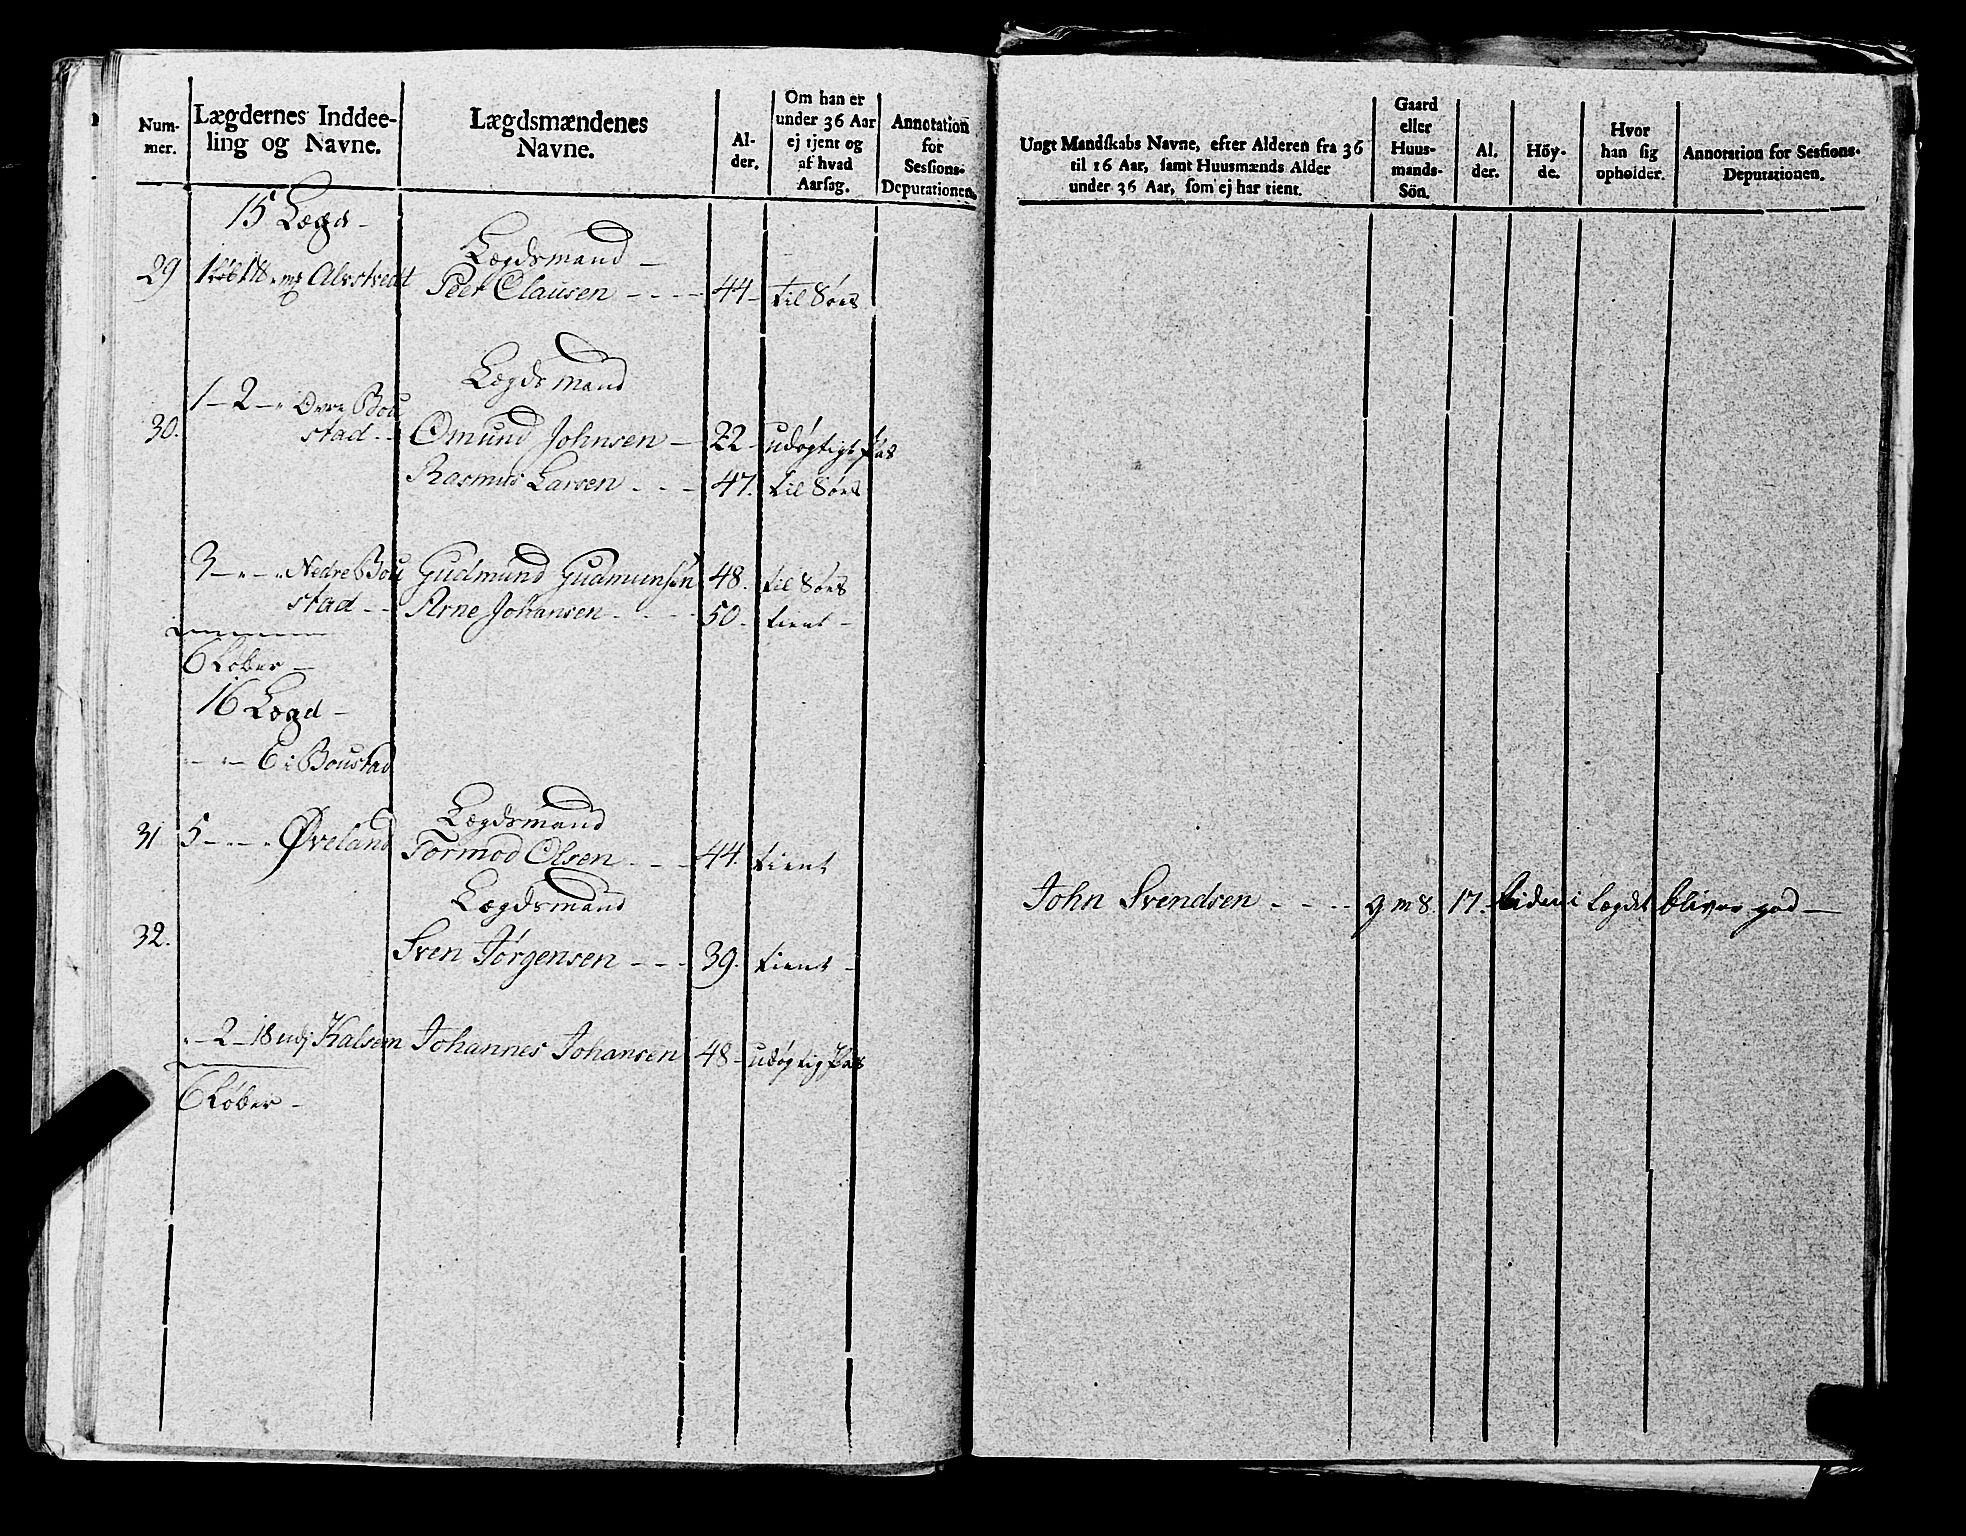 Num-
mer.
Lægdernes Inddee-
ling og Navne.
Lægdsmændenes
Navne.
Al-
der.
Om han er
under 36 Aar
ej tjent og
af hvad
Aarsag.
Annotation
for
Sessions-
Deputationen.
15 Lægd -
Lægdsmand -
29 Alvstvedt Peer Clausen - - - - 44 - til Søes
Lægdsmand
1 - 2 - " Øvre Bou
30. stad - - Omund Johnsen - 22 - udøgtigs Pas
Rasmus Larsen - - - 47. til Søes
3 - " - " Nedre Bou Gudmund Gudmunsen 48. til Søes
stad - - Arne Johansen - - - - 50 - tient -
6 Løber -
16 Lægd -
" - " - 6 i Boustad
Lægdsmand
31 5 - " - " Øveland Tormod Olsen - - - 44. tient
Lægdsmand
32. Sven Jørgensen - - - 39. tient -
" - 2 - 18 Kalsem Johannes Johansen 48 - udøgtig Pas
6 Løber -
Ungt Mandskabs Navne, efter Alderen fra 36
til 16 Aar, samt Huusmænds Alder
under 36 Aar, som ej har tient.
Gaard
eller
Huus-
mands-
Sön.
Al.
der.
Höy-
de.
Hvor
han sig
opholder.
Annotation for Sessions-
Deputationen.
John Svendsen - - - - g m 8. 17. i Lægdet bliver god -